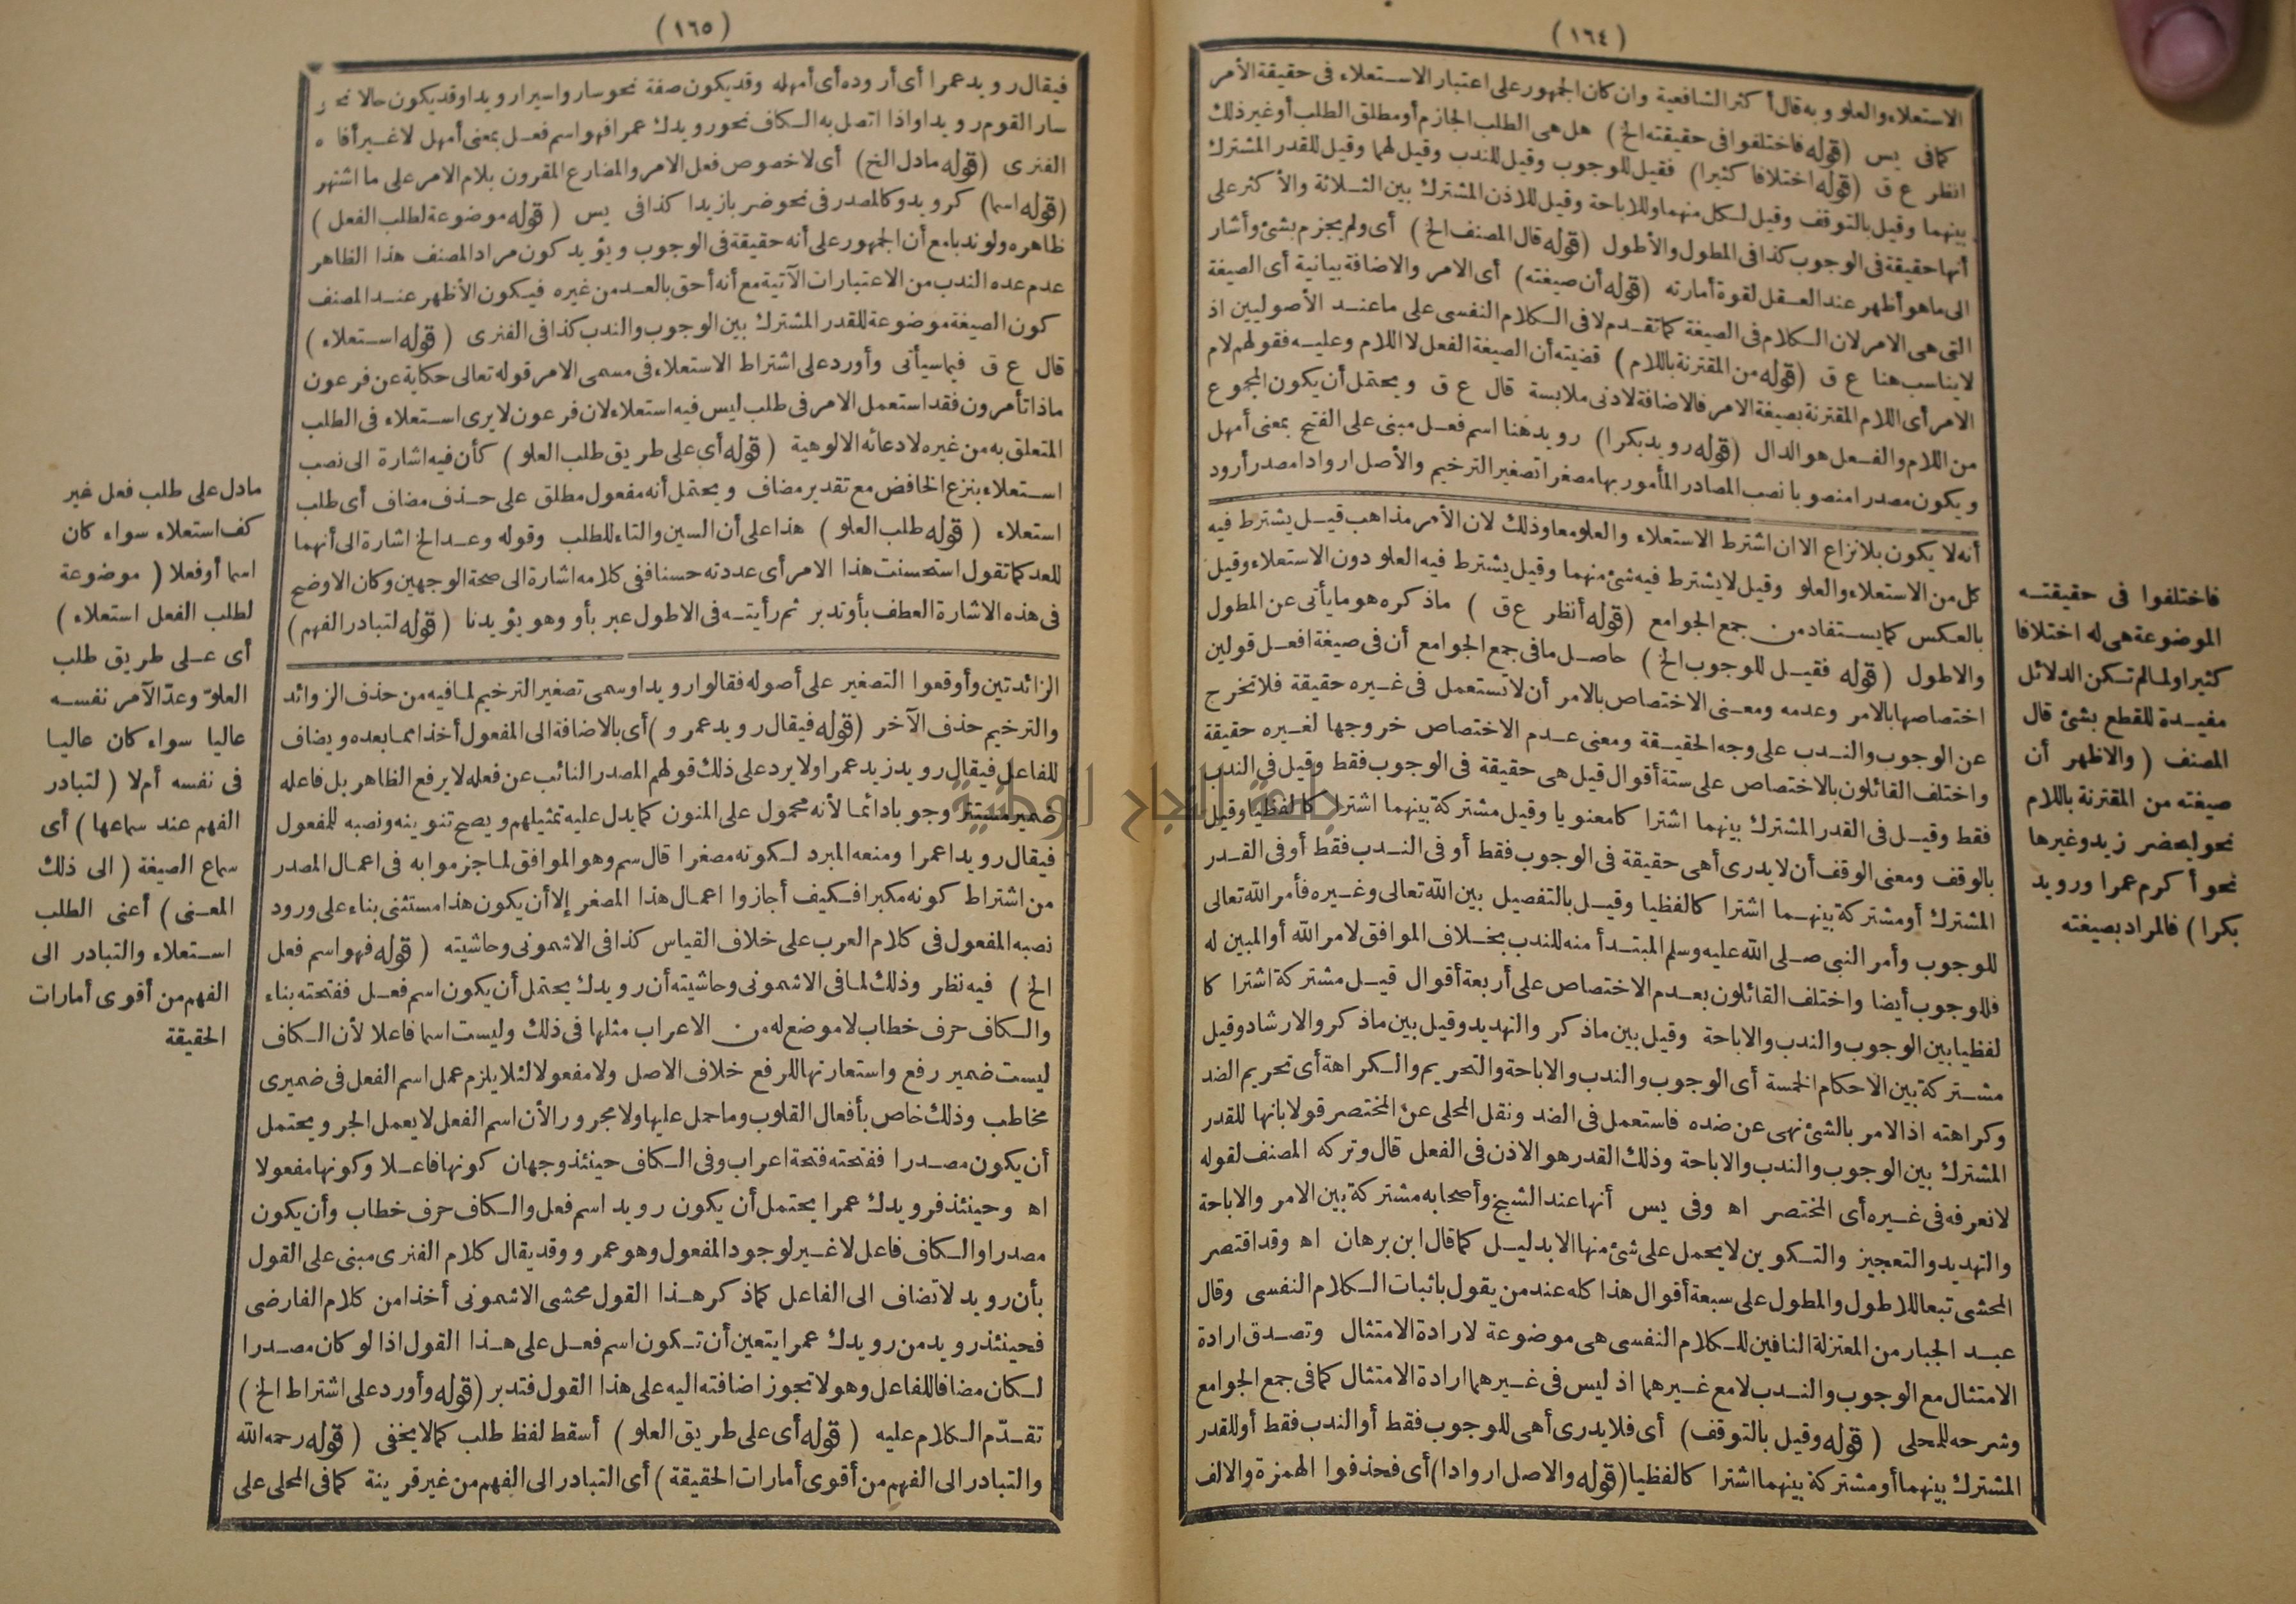 (١٦٤)
الاستعلاء والعلو وبه قال أكثر الشافعية وان كان الجمهور على اعتبار الاستعلاء فى حقيقة الأمر
كما فى يس (قوله فاختلفوا فى حقيقته الخ) هل هى الطلب الجازم أو مطلق الطلب أو غير ذلك
انظر ع ق (قوله اختلافا كثيرا) فقيل للوجوب وقيل للندب وقيل لهما وقيل للقدر المشترك
بينهما وقيل بالتوقف وقيل لكل منهما وللاباحة وقيل للاذن المشترك بين الثلاثة والأكثر على
أنها حقيقة فى الوجوب كذا فى المطول والأطول (قوله قال المصنف الخ) أى ولم يجزم بشئ وأشار
الى ما هو أظهر عند العقل لقوة أمارته (قوله أن صيغته) أى الامر والاضافة بيانية أى الصيغة
التى هى الامر لان الكلام فى الصيغة كما تقدم لا فى الكلام النفسى على ما عند الأصوليين اذ
لا يناسب هنا ع ق (قوله من المقترنة باللام) قضيته أن الصيغة الفعل لا اللام وعليه فقولهم لام
الامر أى اللام المقترنة بصيغة الامر فالاضافة لادنى ملابسة قال ع ق ويحتمل أن يكون المجموع
من اللام والفعل هو الدال (قوله رويد بكرا) رويد هنا اسم فعل مبنى على الفتح بمعنى أمهل
ويكون مصدرا منصوبا نصب المصادر المأمور بها مصغرا تصغير الترخيم والأصل اروادا مصدر أرود
أنه لا يكون بلا نزاع الا ان اشترط الاستعلاء والعلو معا وذلك لان الأمر مذاهب قيل يشترط فيه
كل من الاستعلاء والعلو وقيل لا يشترط فيه شئ منهما وقيل يشترط فيه العلو دون الاستعلاء وقيل
بالعكس كما يستفاد من جمع الجوامع (قوله أنظر ع ق) ما ذكره هو ما يأتى عن المطول
والاطول (قوله فقيل للوجوب الخ) حاصل ما فى جمع الجوامع أن فى صيغة افعل قولين
اختصاصها بالامر وعدمه ومعنى الاختصاص بالامر أن لا تستعمل فى غيره حقيقة فلا تخرج
عن الوجوب والندب على وجه الحقيقة ومعنى عدم الاختصاص خروجها لغيره حقيقة
واختلف القائلون بالاختصاص على ستة أقوال قيل هى حقيقة فى الوجوب فقط وقيل فى الندب
فقط وقيل فى القدر المشترك بينهما اشتراكا معنويا وقيل مشتركة بينهما اشتراكا لفظيا وقيل
بالوقف ومعنى الوقف أن لا يدرى أهى حقيقة فى الوجوب فقط أو فى الندب فقط أو فى القدر
المشترك أو مشتركة بينهما اشتراكا لفظيا وقيل بالتفصيل بين الله تعالى وغيره فأمر الله تعالى
للوجوب وأمر النبى صلى الله عليه وسلم المبتدأ منه للندب بخلاف الموافق لامر الله أو المبين له
فللوجوب أيضا واختلف القائلون بعدم الاختصاص على أربعة أقوال قيل مشتركة اشتراكا
لفظيا بين الوجوب والندب والاباحة وقيل بين ما ذكر والتهديد وقيل بين ما ذكر والارشاد وقيل
مشتركة بين الاحكام الخمسة أى الوجوب والندب والاباحة والتحريم والكراهة أى تحريم الضد
وكراهته اذ الامر بالشئ نهى عن ضده فاستعمل فى الضد ونقل المحلى عن المختصر قولا بانها للقدر
المشترك بين الوجوب والندب والاباحة وذلك القدر هو الاذن فى الفعل قال وتركه المصنف لقوله
لا نعرفه فى غيره أى المختصر اه وفى يس أنها عند الشيخ وأصحابه مشتركة بين الامر والاباحة
والتهديد والتعجيز والتكوين لا يحمل على شئ منها الا بدليل كما قال ابن برهان اه وقد اقتصر
المحشى تبعا للاطول والمطول على سبعة أقوال هذا كله عند من يقول باثبات الكلام النفسى وقال
عبد الجبار من المعتزلة النافين للكلام النفسى هى موضوعة لارادة الامتثال وتصدق ارادة
الامتثال مع الوجوب والندب لا مع غيرهما اذ ليس فى غيرهما ارادة الامتثال كما فى جمع الجوامع
وشرحه للمحلى (قوله وقيل بالتوقف) أى فلا يدرى أهى للوجوب فقط أو الندب فقط أو للقدر
المشترك بينهما أو مشتركة بينهما اشتراكا لفظيا (قوله والاصل اروادا) أى فحذفوا الهمزة والالف
فاختلفوا فى حقيقته
الموضوعة هى له اختلافا
كثيرا ولما لم تكن الدلائل
مفيدة للقطع بشئ قال
المصنف (والاظهر أن
صيغته من المقترنة باللام
نحو ليحضر زيد وغيرها
نحو أكرم عمرا ورويد
بكرا) فالمراد بصيغته
(١٦٥)
فيقال رويد عمرا أى أروده أى أمهله وقد يكون صفة نحو سار واسيرا رويدا وقد يكون حالا نحو
سار القوم رويدا واذا اتصل به الكاف نحو رويدك عمرا فهو اسم فعل بمعنى أمهل لا غير أفاده
الفنرى (قوله ما دل الخ) أى لا خصوص فعل الامر والمضارع المقرون بلام الامر على ما اشتهر
(قوله اسما) كرويد وكالمصدر فى نحو ضربا زيدا كذا فى يس (قوله موضوعة لطلب الفعل)
ظاهره ولو ندبا مع أن الجمهور على أنه حقيقة فى الوجوب ويؤيد كون مراد المصنف هذا الظاهر
عدم عده الندب من الاعتبارات الآتية مع أنه أحق بالعد من غيره فيكون الأظهر عند المصنف
كون الصيغة موضوعة للقدر المشترك بين الوجوب والندب كذا فى الفنرى (قوله استعلاء)
قال ع ق فيما سيأتى وأورد على اشتراط الاستعلاء فى مسمى الامر قوله تعالى حكاية عن فرعون
ماذا تأمرون فقد استعمل الامر فى طلب ليس فيه استعلاء لان فرعون لا يرى استعلاء فى الطلب
المتعلق به من غيره لادعائه الالوهية (قوله أى على طريق طلب العلو) كأن فيه اشارة الى نصب
استعلاء بنزع الخافض مع تقدير مضاف ويحتمل أنه مفعول مطلق على حذف مضاف أى طلب
استعلاء (قوله طلب العلو) هذا على أن السين والتاء للطلب وقوله وعد الخ اشارة الى أنهما
للعد كما تقول استحسنت هذا الامر أى عددته حسنا ففى كلامه اشارة الى صحة الوجهين وكان الاوضح
فى هذه الاشارة العطف بأو وتدبر ثم رأيته فى الاطول عبر بأو وهو يؤيدنا (قوله لتبادر الفهم)
الزائدتين وأوقعوا التصغير على أصوله فقالوا رويدا وسمى تصغير الترخيم لما فيه من حذف الزوائد
والترخيم حذف الآخر (قوله فيقال رويد عمرو) أى بالاضافة الى المفعول أخذا مما بعده ويضاف
للفاعل فيقال رويد زيد عمرا ولا يرد على ذلك قولهم المصدر النائب عن فعله لا يرفع الظاهر بل فاعله
ضمير مستتر وجوبا دائما لأنه محمول على المنون كما يدل عليه تمثيلهم ويصح تنوينه ونصبه للمفعول
فيقال رويدا عمرا ومنعه المبرد لكونه مصغرا قال سم وهو الموافق لما جزموا به فى اعمال المصدر
من اشتراط كونه مكبرا فكيف أجازوا اعمال هذا المصغر إلا أن يكون هذا مستثنى بناء على ورود
نصبه المفعول فى كلام العرب على خلاف القياس كذا فى الاشمونى وحاشيته (قوله فهو اسم فعل
الخ) فيه نظر وذلك لما فى الاشمونى وحاشيته أن رويدك يحتمل أن يكون اسم فعل ففتحته بناء
والكاف حرف خطاب لا موضع له من الاعراب مثلها فى ذلك وليست اسما فاعلا لأن الكاف
ليست ضمير رفع واستعارتها للرفع خلاف الاصل ولا مفعولا لئلا يلزم عمل اسم الفعل فى ضميرى
مخاطب وذلك خاص بأفعال القلوب وما حمل عليها ولا مجرورا لأن اسم الفعل لا يعمل الجر ويحتمل
أن يكون مصدرا ففتحته فتحة اعراب وفى الكاف حينئذ وجهان كونها فاعلا وكونها مفعولا
اه وحينئذ فرويدك عمرا يحتمل أن يكون رويد اسم فعل والكاف حرف خطاب وأن يكون
مصدرا والكاف فاعل لا غير لوجود المفعول وهو عمرو وقد يقال كلام الفنرى مبنى على القول
بأن رويد لا تضاف الى الفاعل كما ذكر هذا القول محشى الاشمونى أخذا من كلام الفارضى
فحينئذ رويد من رويدك عمرا يتعين أن تكون اسم فعل على هذا القول اذ لو كان مصدرا
لكان مضافا للفاعل وهو لا تجوز اضافته اليه على هذا القول فتدبر (قوله وأورد على اشتراط الخ)
تقدّم الكلام عليه (قوله أى على طريق العلو) أسقط لفظ طلب كما لا يخفى (قوله رحمه الله
والتبادر الى الفهم من أقوى أمارات الحقيقة) أى التبادر الى الفهم من غير قرينة كما فى المحلى على
ما دل على طلب فعل غير
كف استعلاء سواء كان
اسما أو فعلا (موضوعة
لطلب الفعل استعلاء)
أى على طريق طلب
العلوّ وعدّ الآمر نفسه
عاليا سواء كان عاليا
فى نفسه أم لا (لتبادر
الفهم عند سماعها) أى
سماع الصيغة (الى ذلك
المعنى) أعنى الطلب
استعلاء والتبادر الى
الفهم من أقوى أمارات
الحقيقة
جامعة النجاح الوطنية